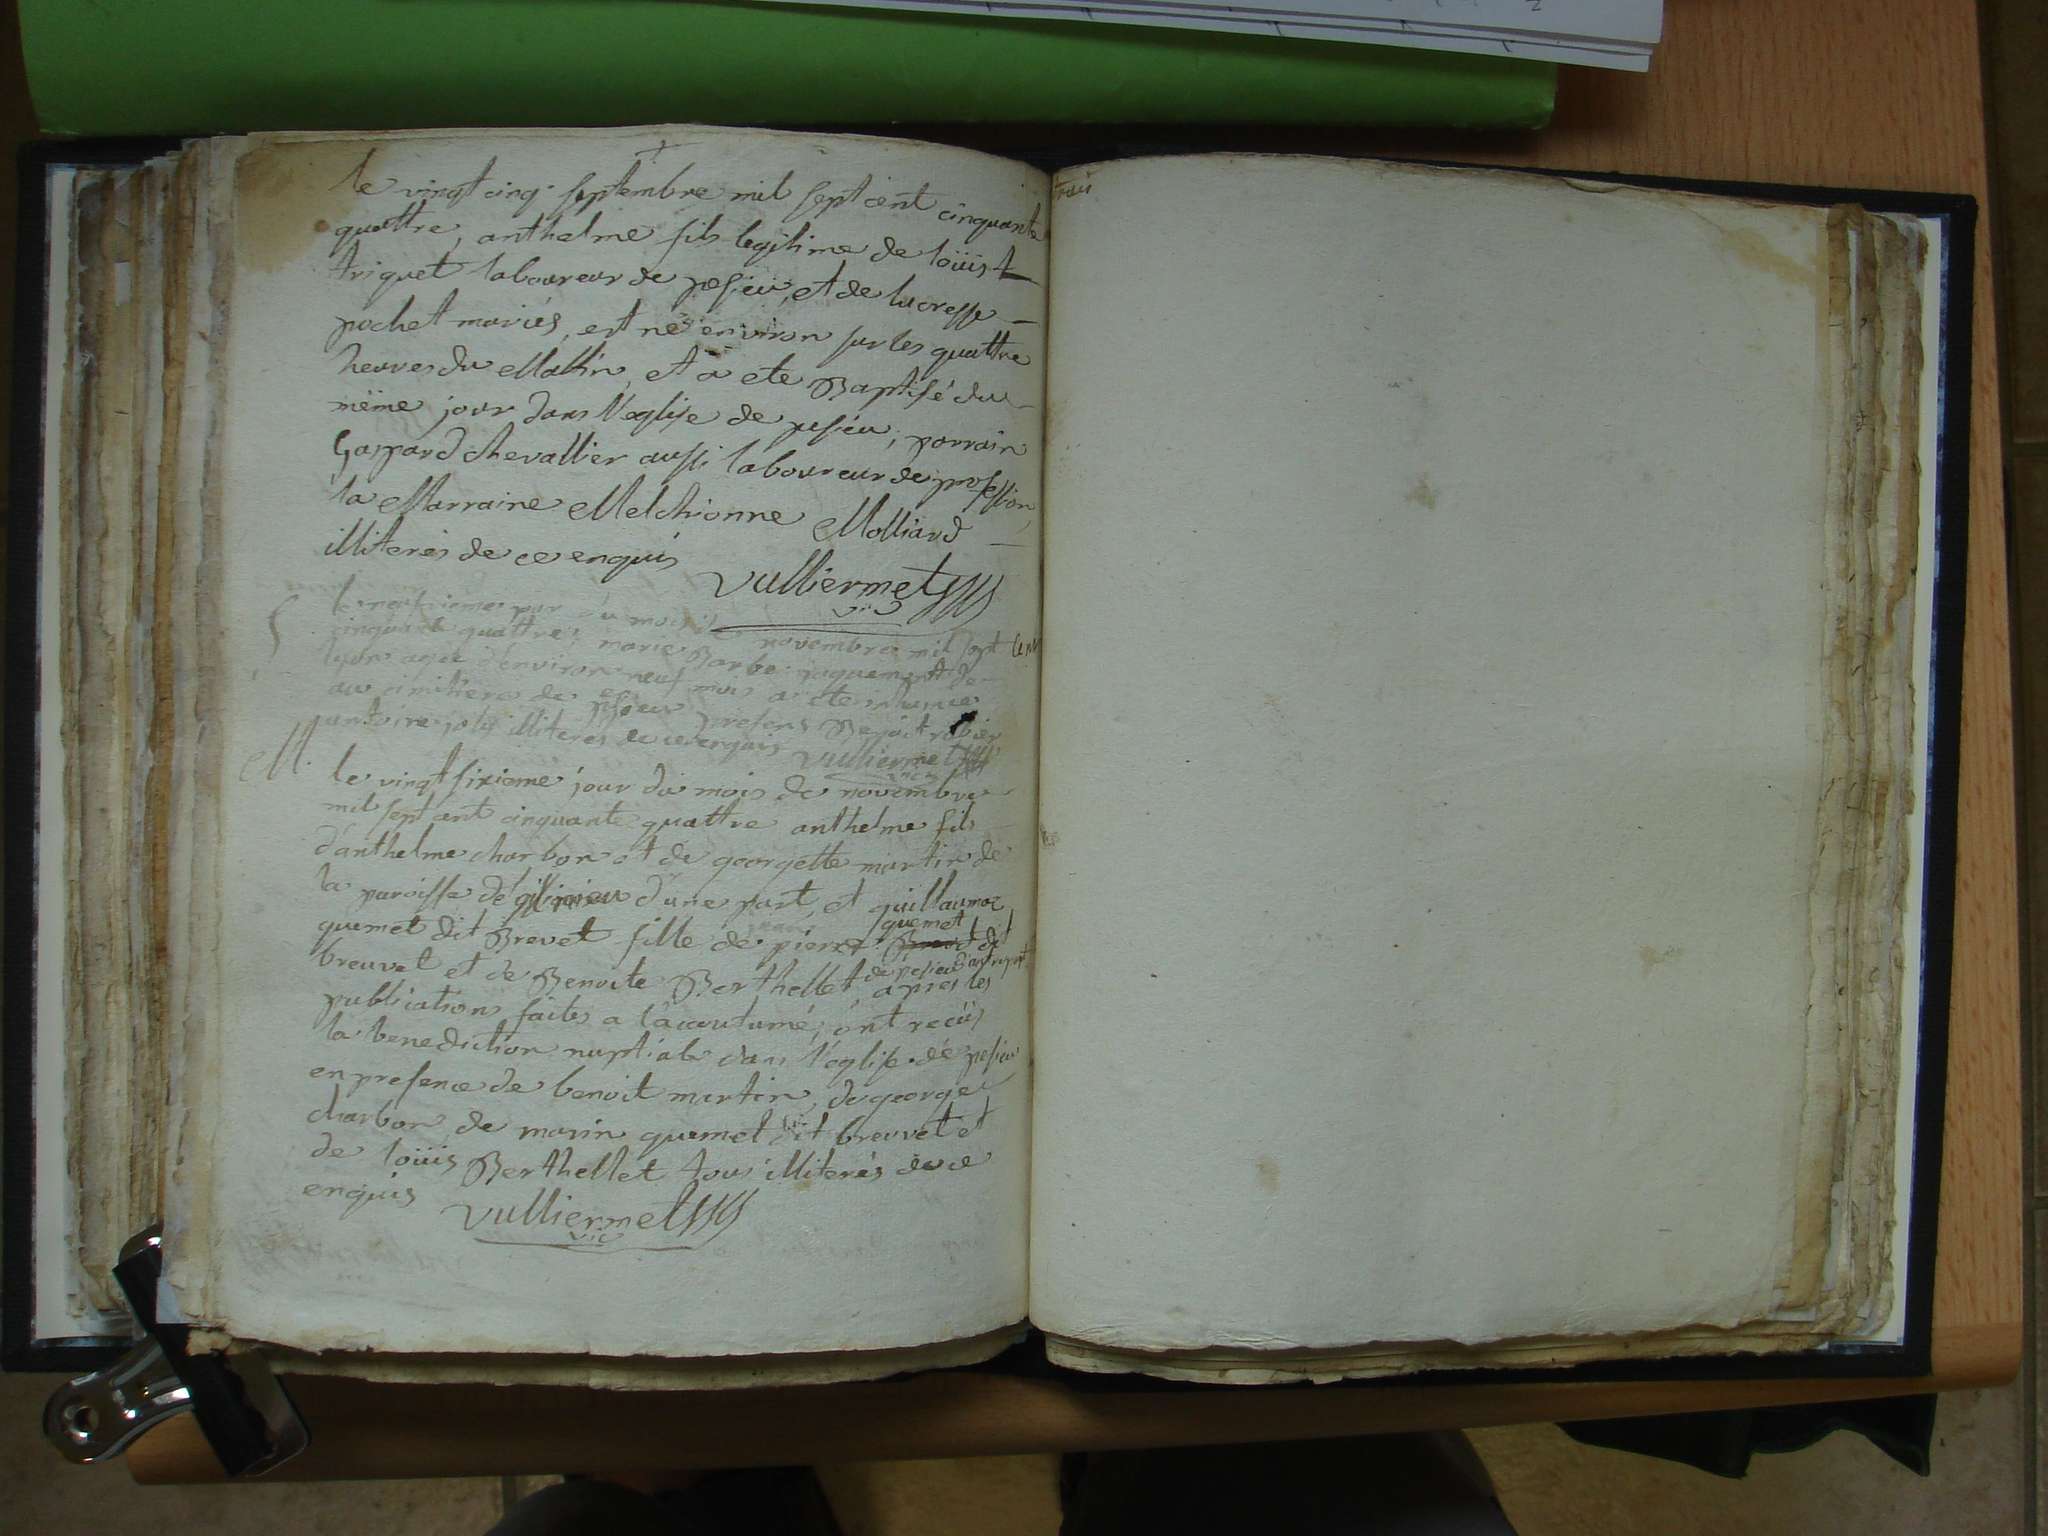 le vingt cinq septembre mil sept cent cinquante
quattre, anthelme fils legitime de loüis
triquet laboureur de pesieu, et de lucresse
pochet mariés, est né environ sur les quattre
heures du Mattin, et a ete Baptisé du
même jour dans l'eglise de pesieu, parrain
Gaspard chevallier aussi laboureur de profession,
la Marraine Melchionne Molliard
illiterés de ce enquis
vulliermet
vic
S
le jour du mois novembre mil sept cent
cinquante quattre marie Barbe jaquemet de
lyon agée d'environ neuf mois a ete inhumée
au cimitiere de presens Benoit
antoine joly illiteres de ce enquis vulliermet
vic
M.
le vingt sixieme jour du mois de novembre
mil sept cent cinquante quattre anthelme fils
d'anthelme charbon et de georgette martin de
la paroisse de d'une part, et guillaumaz
quemet dit Brevet fille de pierre quemet dit
breuvet et de Benoite Berthellet de pesieu d'autre part, apres les
publications faites a l'acoutumé, ont reçüs
la benediction nuptiale dans l'eglise de pesieu
en presence de benoit martin, de george
charbon de marin quemet dit breuvet et
de loüis Berthellet tous illiterés de ce
enquis
vulliermet
vic